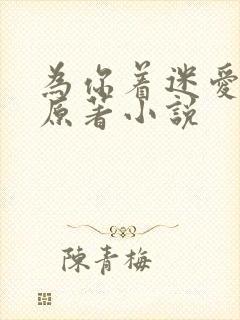 為你着迷愛
原著小説
陳青梅